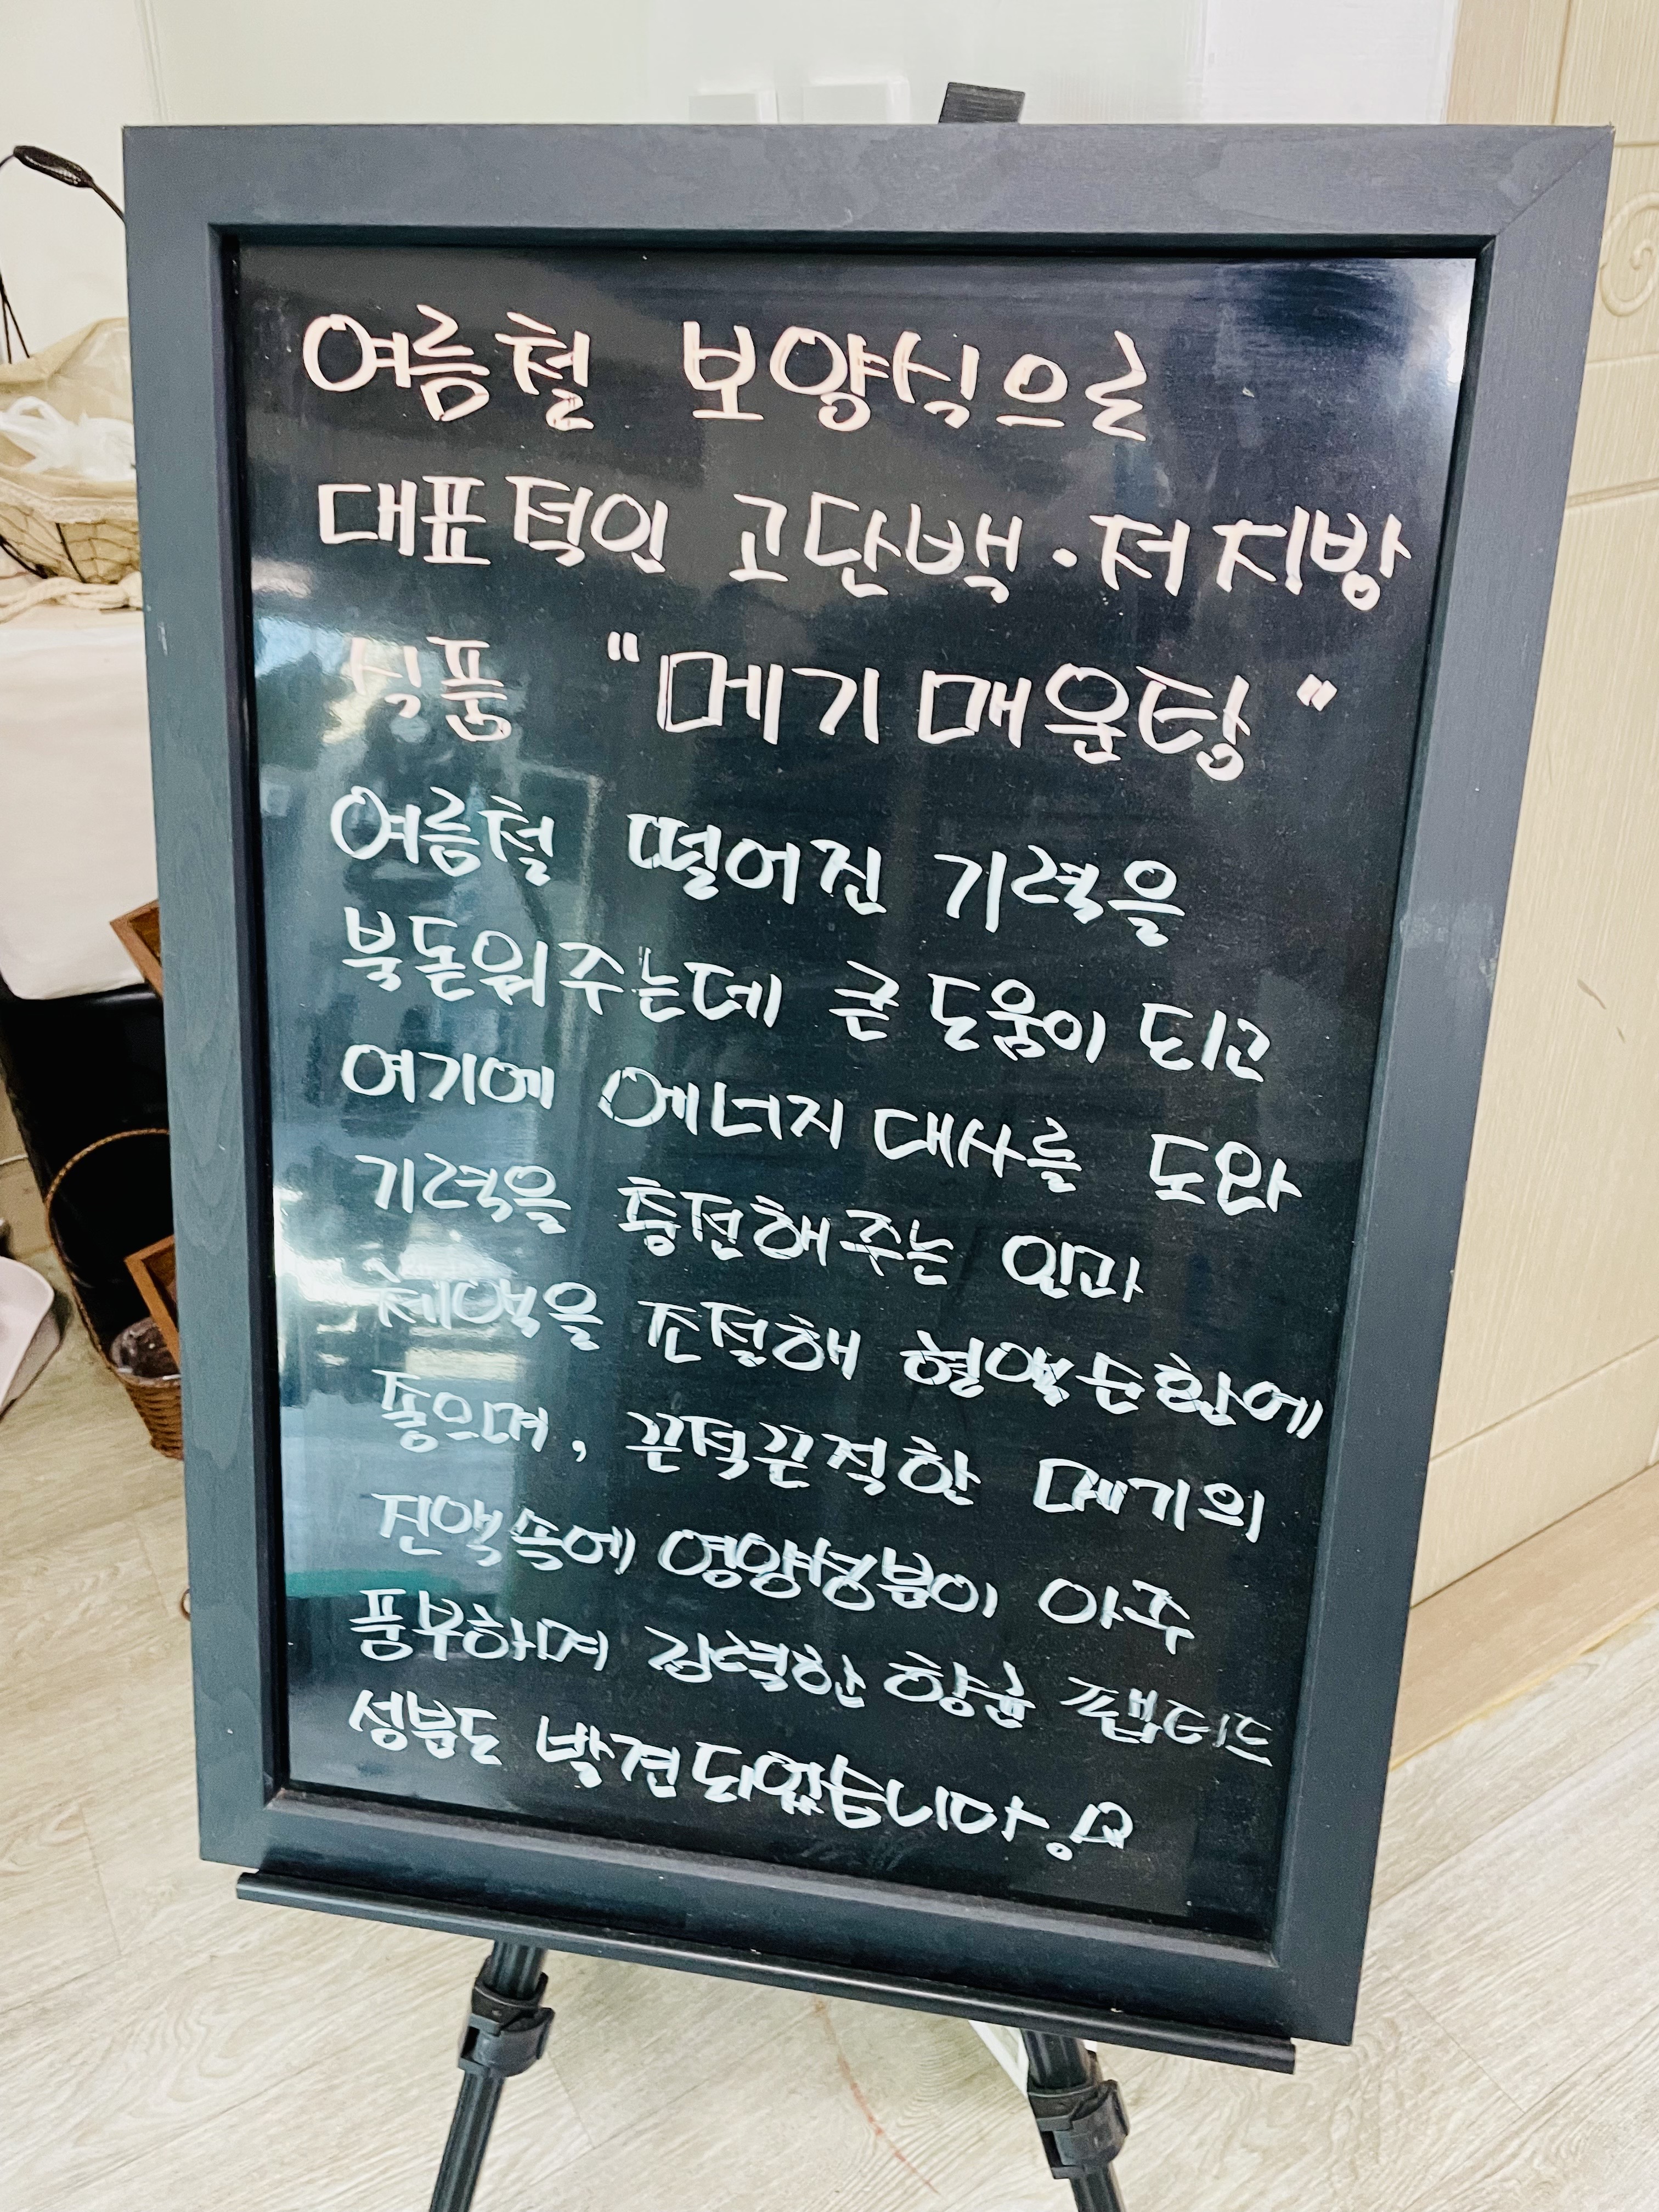 여름철 보양식으로
대표적인 고단백·저지방
식품 "메기매운탕"
여름철 떨어진 기력을
북돋워주는데 큰 도움이 되고
여기에 에너지 대사를 도와
기력을 충전해주는 인과
체액을 조절해 혈액순환에
좋으며, 끈적끈적한 메기의
진액속에 영양성분이 아주
풍부하며 강력한 항균 팹티드
성분도 발견되었습니다.